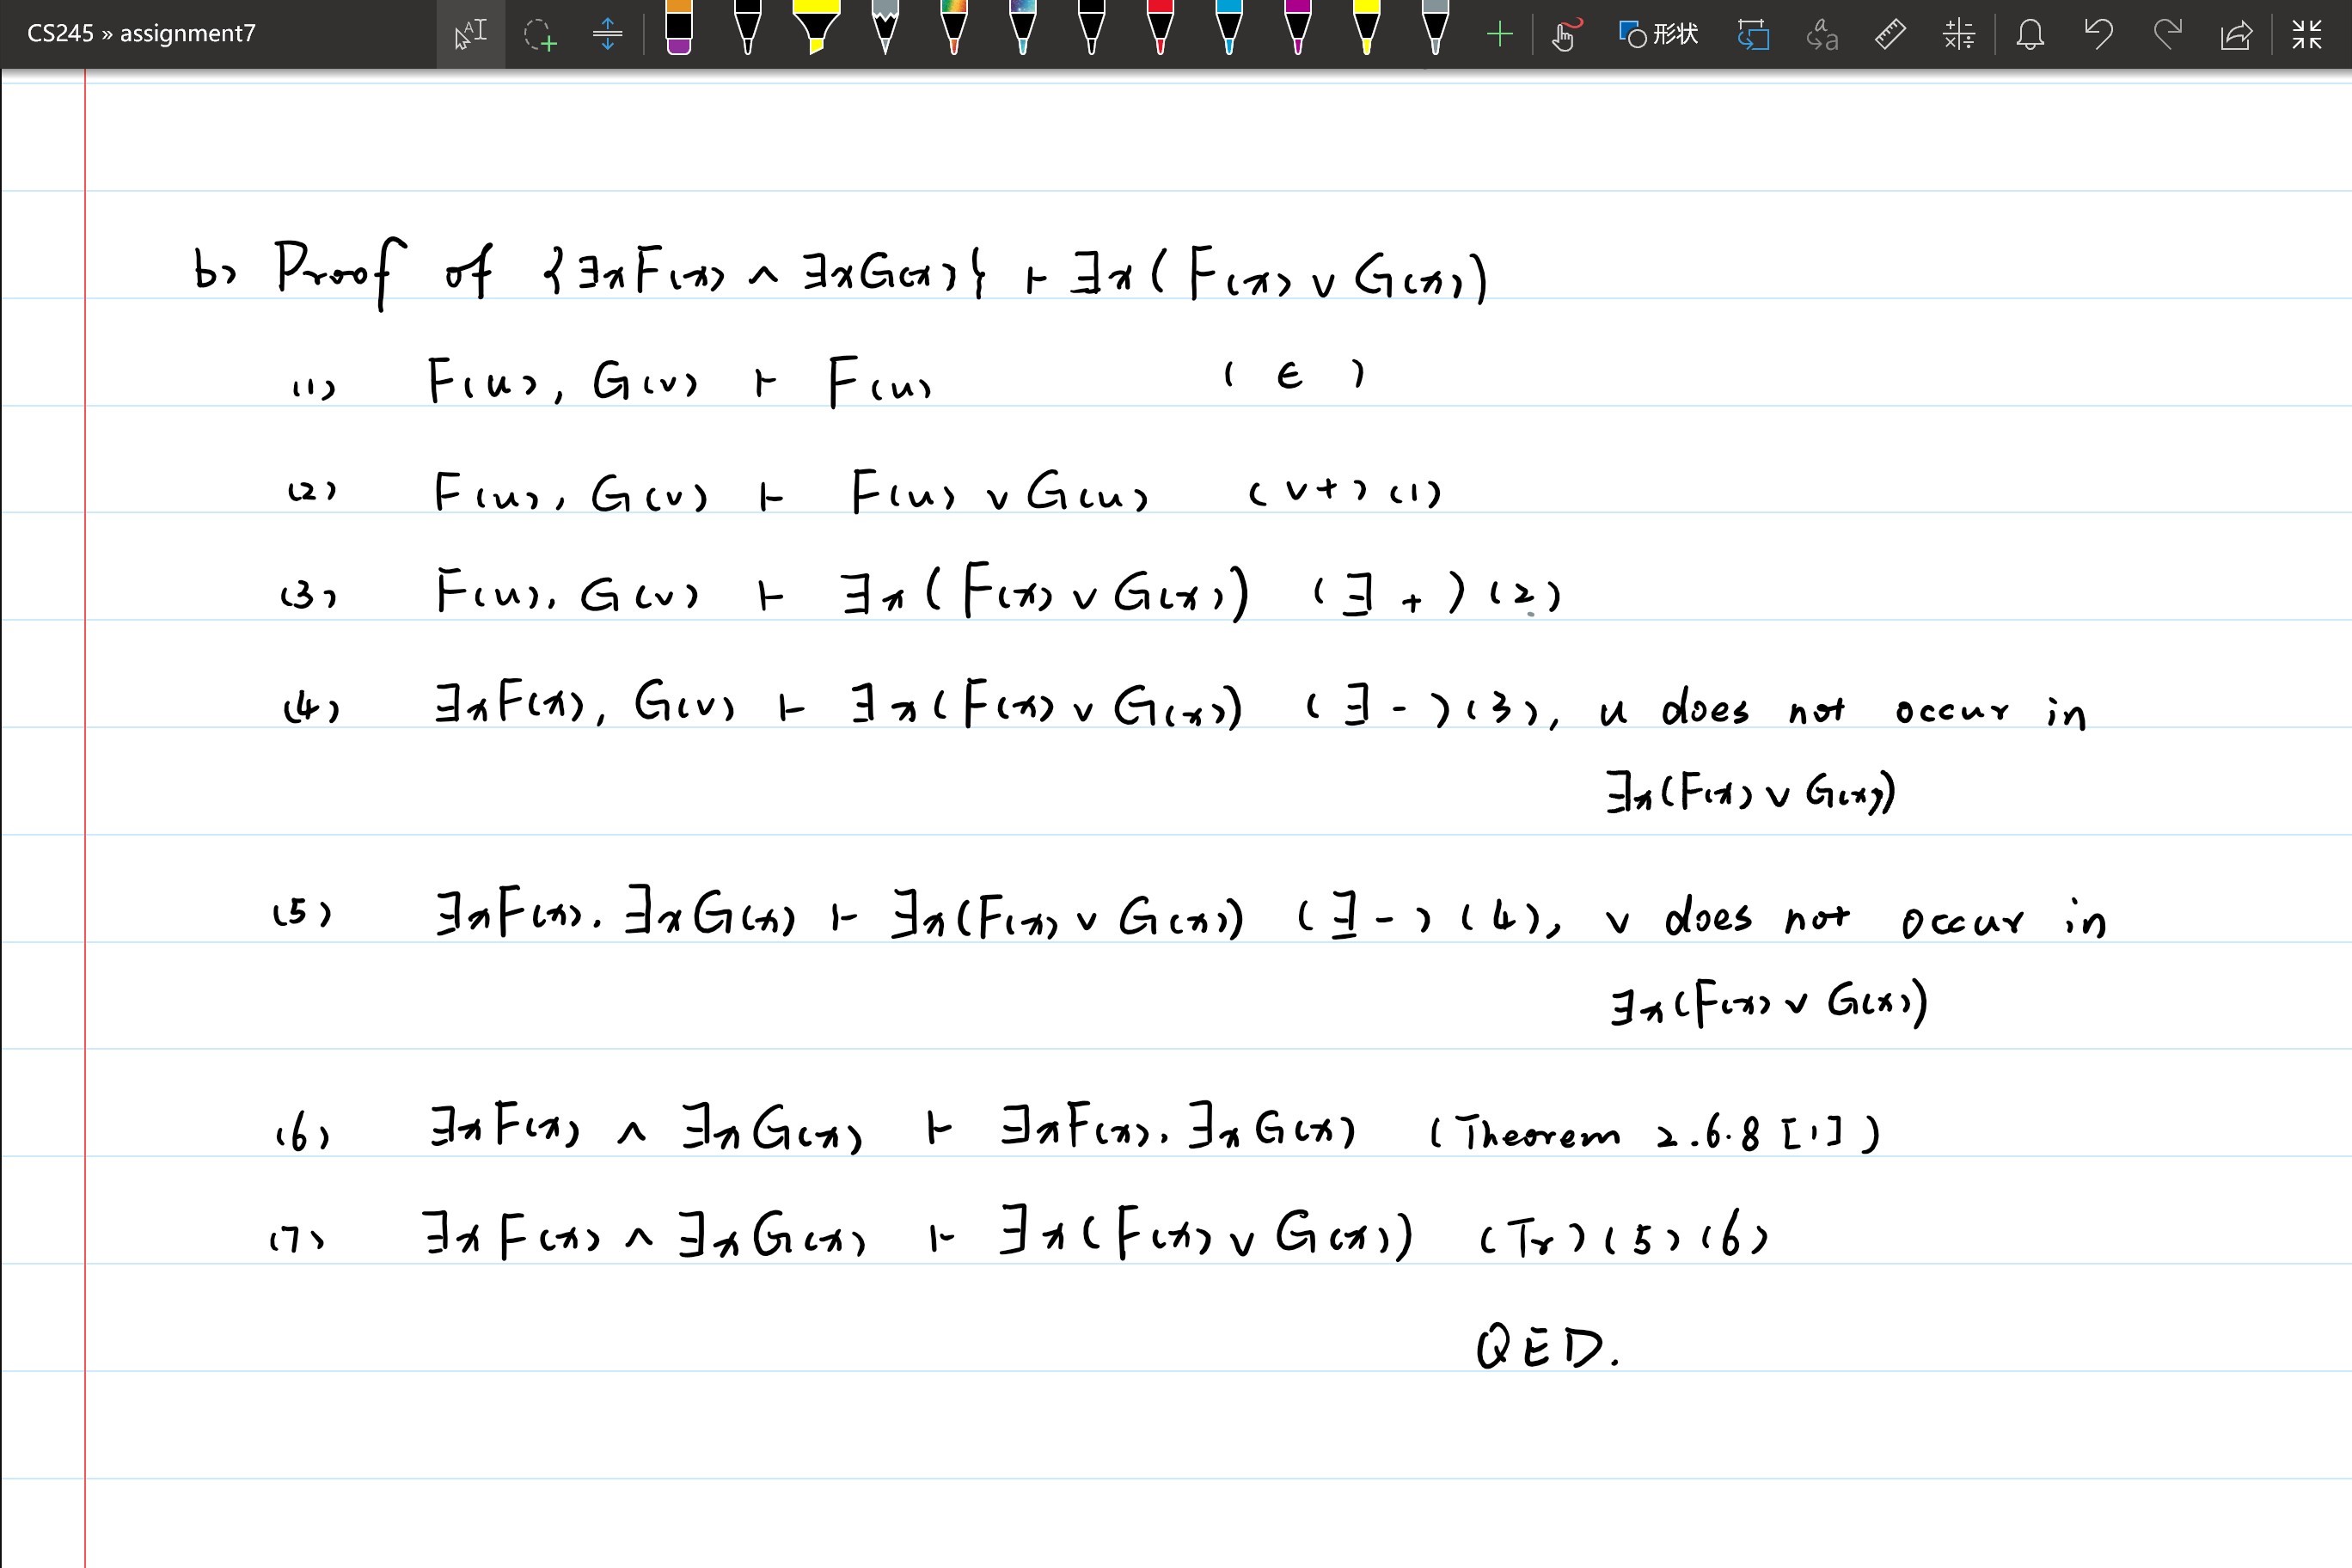 CS245 » assignment7
形状
b) Proof of {∃xF(x) ∧ ∃xG(x)} ⊢ ∃x(F(x) ∨ G(x))
(1) F(u), G(v) ⊢ F(u) (∈)
(2) F(u), G(v) ⊢ F(u) ∨ G(u) (∨+)(1)
(3) F(u), G(v) ⊢ ∃x(F(x) ∨ G(x)) (∃+)(2)
(4) ∃xF(x), G(v) ⊢ ∃x(F(x) ∨ G(x)) (∃-)(3), u does not occur in
∃x(F(x) ∨ G(x))
(5) ∃xF(x), ∃xG(x) ⊢ ∃x(F(x) ∨ G(x)) (∃-)(4), v does not occur in
∃x(F(x) ∨ G(x))
(6) ∃xF(x) ∧ ∃xG(x) ⊢ ∃xF(x), ∃xG(x) (Theorem 2.6.8 [1])
(7) ∃xF(x) ∧ ∃xG(x) ⊢ ∃x(F(x) ∨ G(x)) (Tr)(5)(6)
QED.